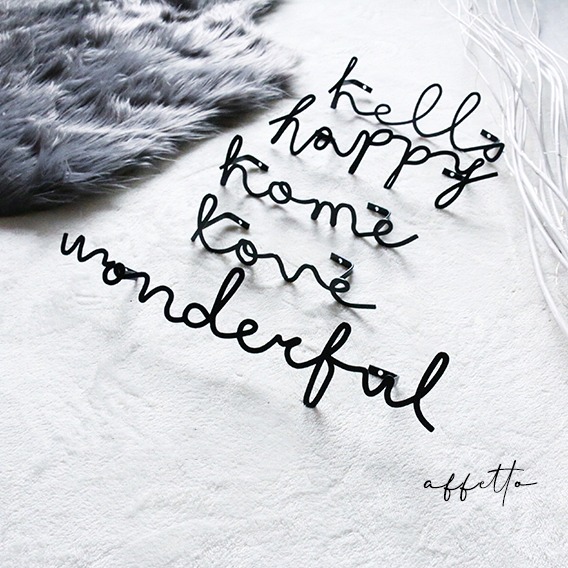 hello
happy
home
love
wonderful
affetto